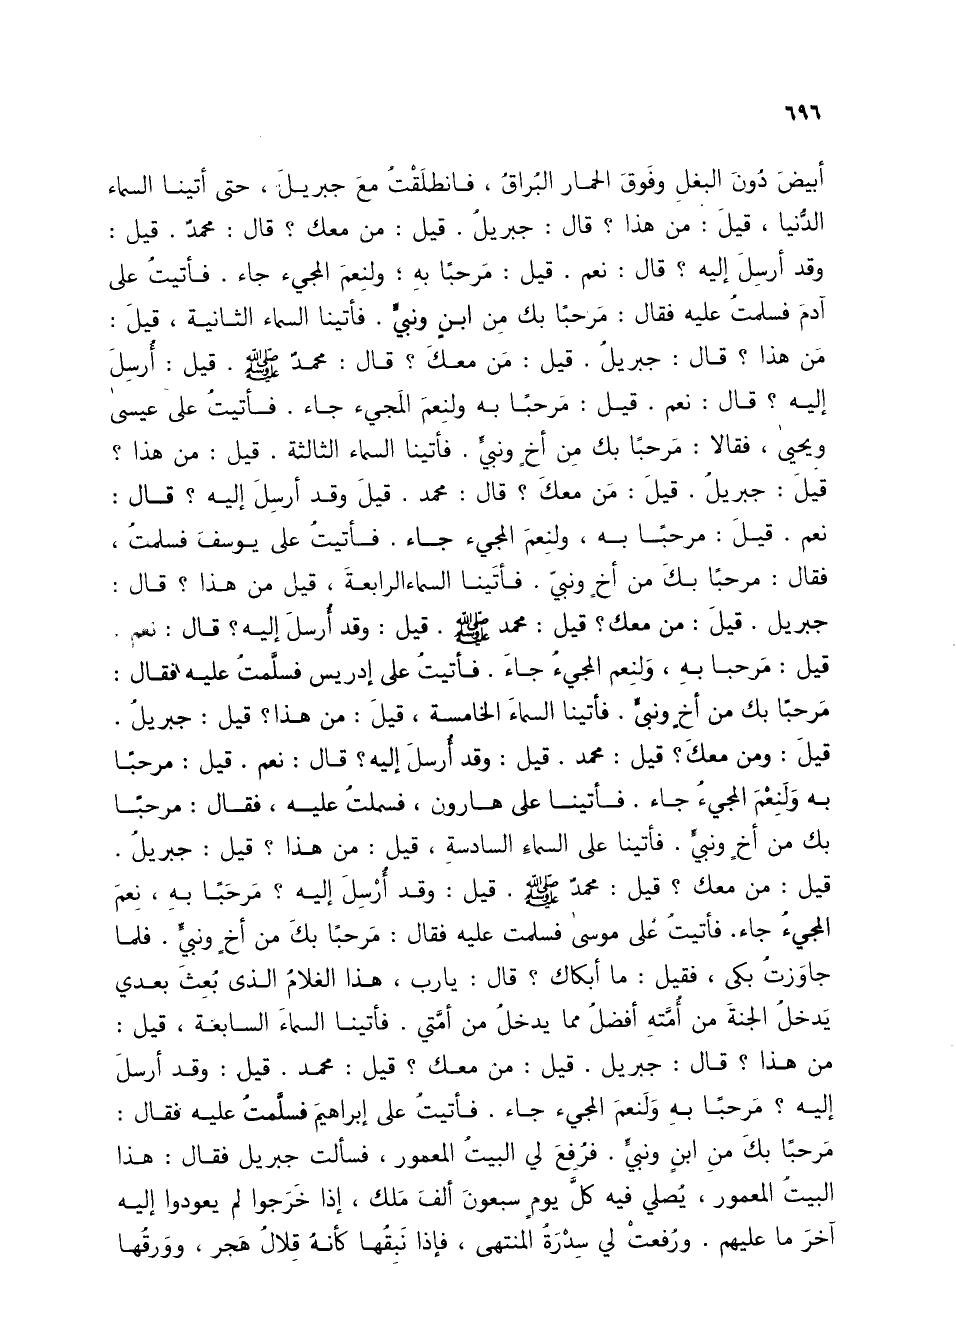 ٦٩٦
أبيضَ دُونَ البغلِ وفَوقَ الحمار البُراقُ ، فـانطلَقْتُ معَ جبريـلَ ، حتى أتينـا السماء
الدُّنيا ، قيلَ : من هذا ؟ قال : جبريلُ . قيل : من معك ؟ قال : محمدٌ . قيل :
وقد أرسِلَ إليه ؟ قال : نعم . قيل : مَرحبًا به ؛ ولنعمَ المجيء جاء . فـأتيتُ على
آدمَ فسلمتُ عليه فقال : مَرحبًا بك من ابنٍ ونبيٍّ . فأتينا السماء الثـانيـة ، قيلَ :
مَن هذا ؟ قـال : جبريلُ . قيل : مَن معـكَ ؟ قـال : محمدٌ ﷺ . قيل : أُرسِلَ
إليـه ؟ قـال : نعم . قيـل : مَرحبًـا بـه ولنِعمَ المَجيء جـاء . فـأتيتُ على عيسىٰ
ويحيىٰ ، فقالا : مَرحبًا بك من أخٍ ونبيٍّ . فأتينا السماء الثالثة . قيل : من هذا ؟
قيلَ : جبريلُ . قيلَ : مَن معكَ ؟ قال : محمد . قيلَ وقـد أرسِلَ إليـه ؟ قـال :
نعم . قيـلَ : مرحبًـا بـه ، ولنِعمَ المجيء جـاء . فـأتيتُ على يـوسفَ فسلمتُ ،
فقال : مرحبًا بـكَ من أخٍ ونبيّ . فـأتَينـا السماءالرابعةَ ، قيل من هـذا ؟ قـال :
جبريل . قيلَ : من معك؟ قيل : محمد ﷺ . قيل : وقد أُرسلَ إليه؟ قـال : نعم .
قيل : مَرحبـا به ، وَلنِعم المجيءُ جاءَ . فـأتيتُ على إدريس فسلَّمتُ عليـه فقـال :
مَرحبًا بك من أخٍ ونبيٍّ . فأتينا السماءَ الخامسـة ، قيلَ : من هـذا؟ قيل : جبريلُ .
قيلَ : ومن معكَ؟ قيل : محمد . قيل : وقد أُرسلَ إليه؟ قال : نعم . قيل : مرحبًـا
به وَلَنِعْمَ المجيءُ جـاء . فـأتينـا على هـارون ، فسلمتُ عليـه ، فقـال : مرحبًـا
بك من أخٍ ونبيٍّ . فأتينا على السماء السادسة ، قيل : من هـذا ؟ قيل : جبريلُ .
قيل : من معك ؟ قيل : محمدٌ ﷺ . قيل : وقـد أُرْسِلَ إليـه ؟ مَرحَبًـا بـه ، نِعمَ
المجيءُ جاء. فأتيتُ عَلى موسىٰ فسلمت عليه فقال : مَرحبًا بكَ من أخٍ ونبيٍّ . فلمـا
جاوَزتُ بكى ، فقيل : ما أبكاك ؟ قال : يارب ، هـذا الغلامُ الـذى بُعثَ بعـدي
يَدخلُ الجنةَ من أُمَّته أفضلُ مما يدخلُ من أمَّتي . فأتينـا السماءَ السـابعـة ، قيل :
من هـذا ؟ قـال : جبريل . قيل : من معـك ؟ قيل : محمـد . قيل : وقـد أرسلَ
إليـه ؟ مَرحبًـا بـهِ وَلَنعمَ المجيء جـاء . فـأتيتُ على إبراهيمَ فسلَّمتُ عليـه فقـال :
مَرحبًا بكَ منِ ابنٍ ونبيٍّ . فرُفِعَ لي البيتُ المعمور ، فسألت جبريل فقـال : هـذا
البيتُ المعمور ، يُصلي فيه كلَّ يومٍ سبعونَ ألفَ مَلك ، إذا خَرَجوا لم يعودوا إليـه
آخرَ ما عليهم . ورُفعتْ لي سِدْرَةُ المنتهى ، فإذا نَبِقُهـا كأنـهُ قِلالُ هَجر ، ووَرقُهـا